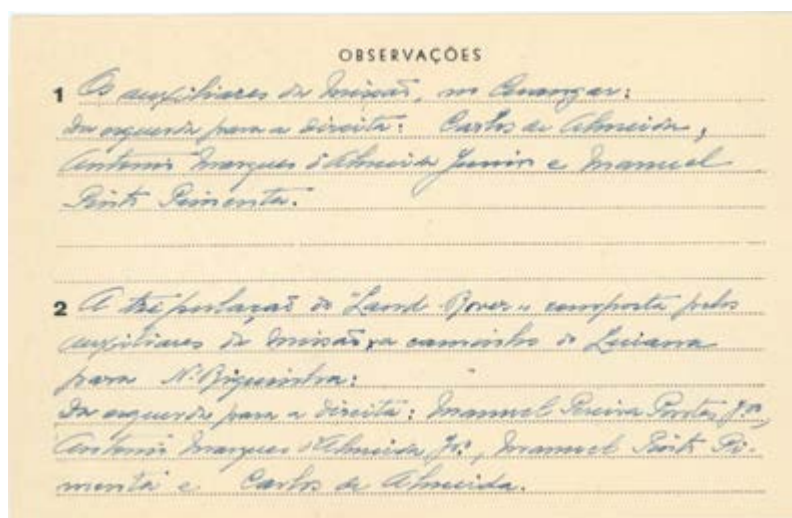 OBSERVAÇÕES
1 Os auxiliares da Missão, no Cuangar:
Da esquerda para a direita: Carlos de Almeida,
Antonio Marques d'Almeida Junior e Manuel
Pinto Pimenta.
2 A tripulação do "Land-Rover" composta pelos
auxiliares da Missão, a caminho de Luiana
para
Da esquerda para a direita: Manuel Pereira
Antonio Marques d'Almeida Jor, Manuel Pinto Pi-
menta e Carlos de Almeida.